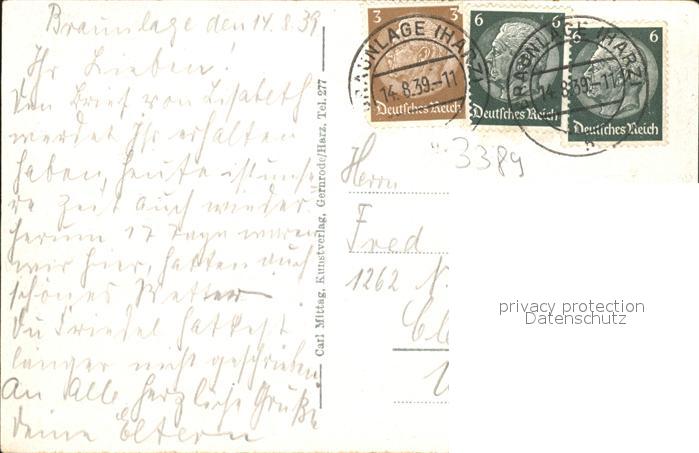 Braunlage den 14.8.39
Ihr Lieben!
Den Brief von Lisabeth
werdet Ihr erhalten
haben, heute ist unse-
re Zeit auch wieder
herum 17 Tage waren
wir hier, hatten auch
schönes Wetter
Du Friedel hattest
länger nicht geschrieben
An Alle herzliche Grüße
deine Eltern
Carl Mittag, Kunstverlag, Gernrode/Harz, Tel. 277
3 3
Deutsches Reich
6
Deutsches Reich
6 6
Deutsches Reich
BRAUNLAGE (HARZ)
14.8.39.-11
BRAUNLAGE (HARZ)
14.8.39.-11
3389
Herrn
Fred
1262 N.
privacy protection
Datenschutz